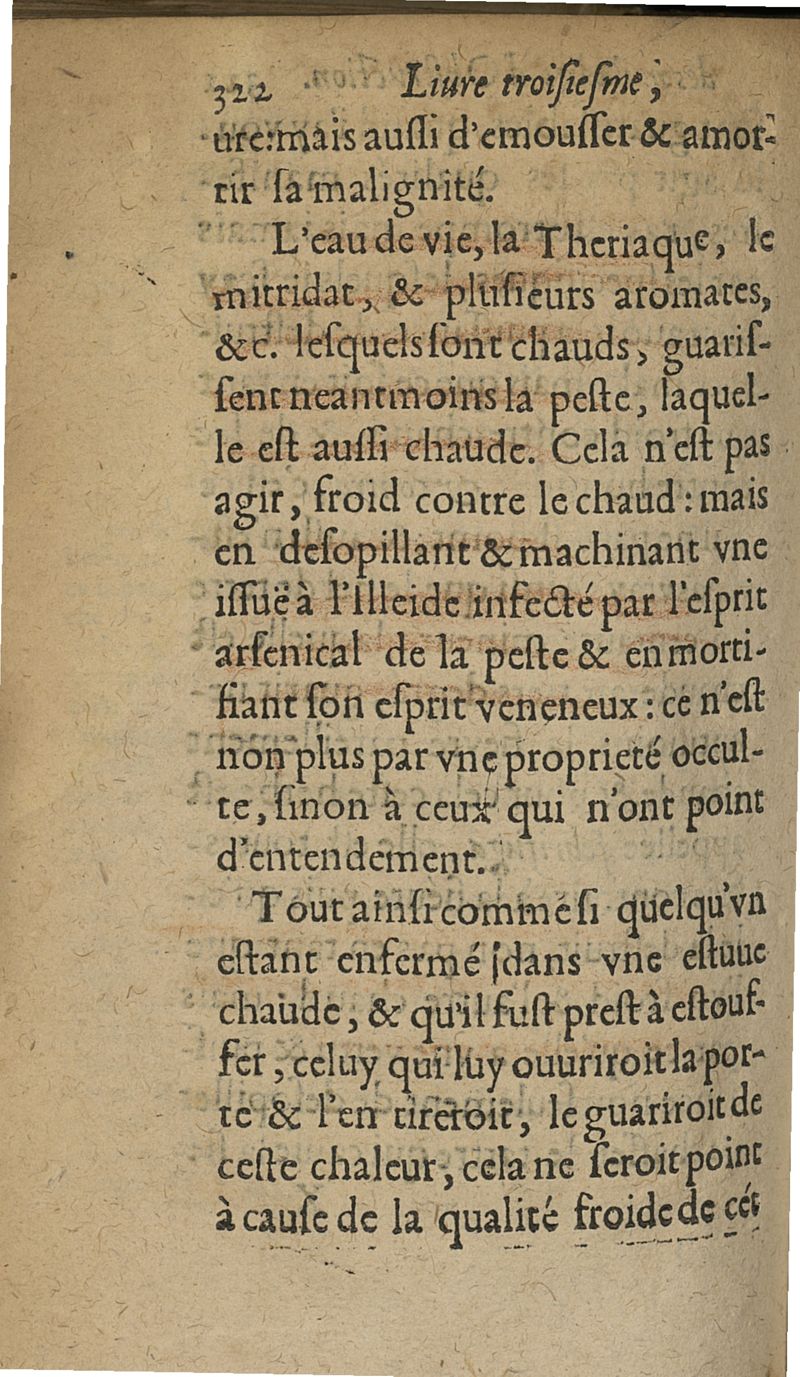 322 Liure troiſieſme,
ure:mais auſſi d'emouſſer & amor-
tir ſa malignité.
L'eau de vie, la Theriaque, le
mitridat, & pluſieurs aromates,
&c. leſquels ſont chauds, guariſ-
ſent neantmoins la peſte, laquel-
le eſt auſſi chaude. Cela n'eſt pas
agir, froid contre le chaud : mais
en deſopillant & machinant vne
iſſuë à l'Illeide infecté par l'eſprit
arſenical de la peſte & en morti-
fiant ſon eſprit veneneux : ce n'eſt
non plus par vne proprieté occul-
te, ſinon à ceux qui n'ont point
d'entendement.
Tout ainſi comme ſi quelqu'vn
eſtant enfermé dans vne eſtuue
chaude, & qu'il fuſt preſt à eſtouf-
fer, celuy qui luy ouuriroit la por-
te & l'en tireroit, le guariroit de
ceſte chaleur, cela ne ſeroit point
à cauſe de la qualité froide de cét